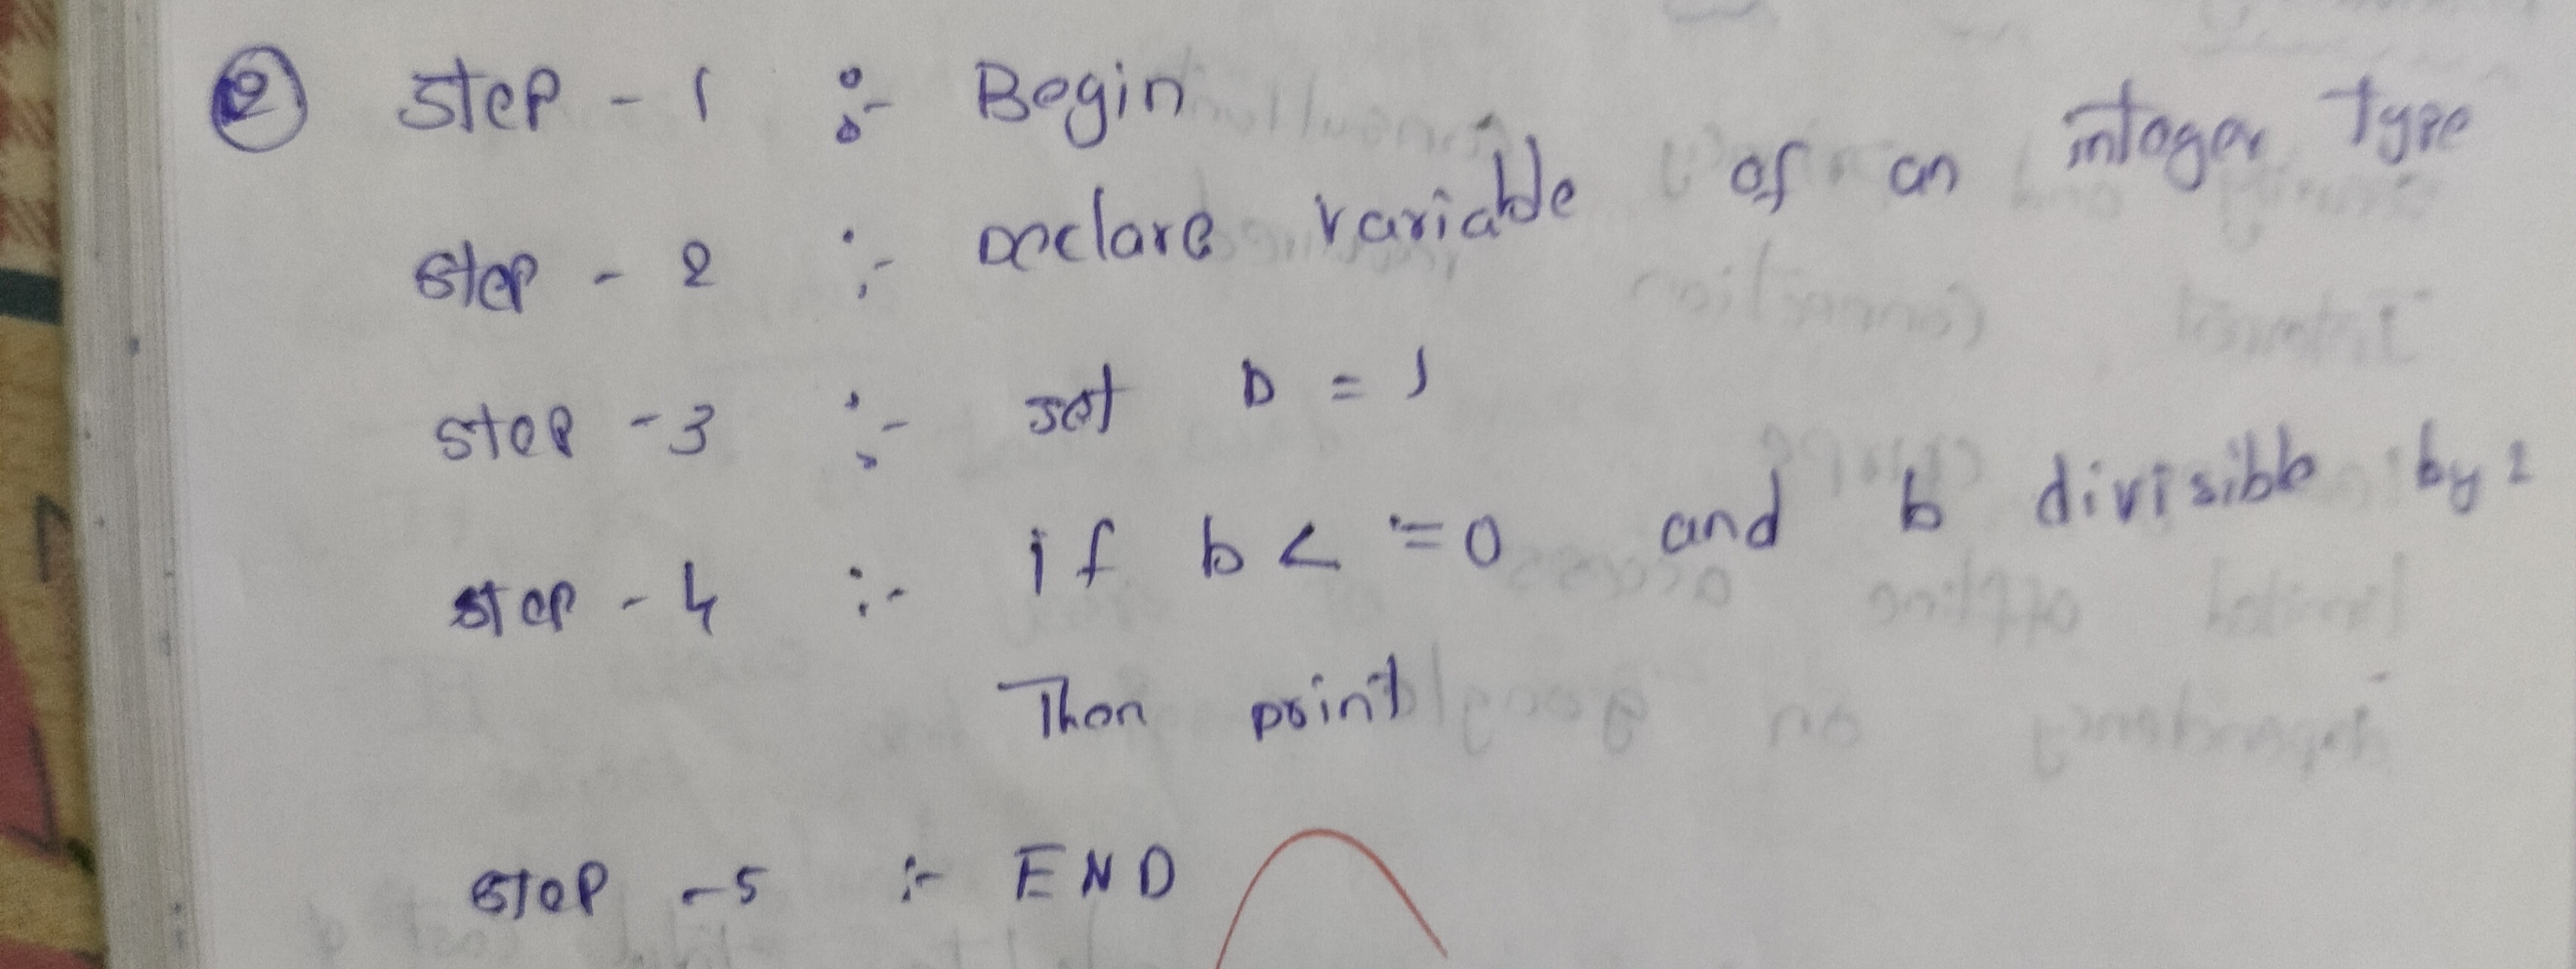 ② Step - 1 :- Begin
Step - 2 :- Declare variable of an integer type
Step - 3 :- set b = 1
Step - 4 :- if b < = 0 and b divisible by 2
Then print
Step - 5 :- END